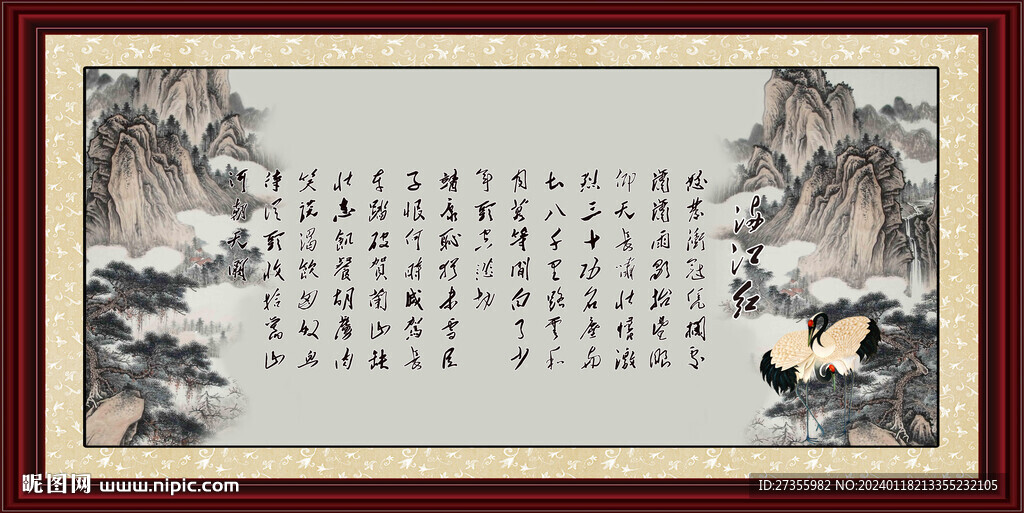 满江红
怒髮衝冠凭欄处
瀟瀟雨歇抬望眼
仰天長嘯壮懷激
烈三十功名塵与
土八千里路雲和
月莫等閒白了少
年頭空悲切
靖康恥猶未雪臣
子恨何時滅駕長
车踏破賀蘭山缺
壮志飢餐胡虜肉
笑談渴飲匈奴血
待從頭收拾舊山
河朝天闕
昵图网 www.nipic.com
ID:27355982 NO:20240118213355232105